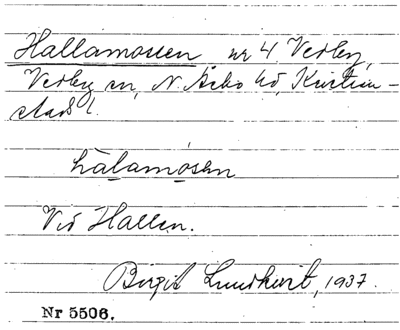 Hallamossen nr 4 Verby,
Verby sn, N. Åsbo hd, Kristian-
stads l.
hàlamósen
Vid Hallen.
Birgit Lundkvist, 1937.
Nr 5506.